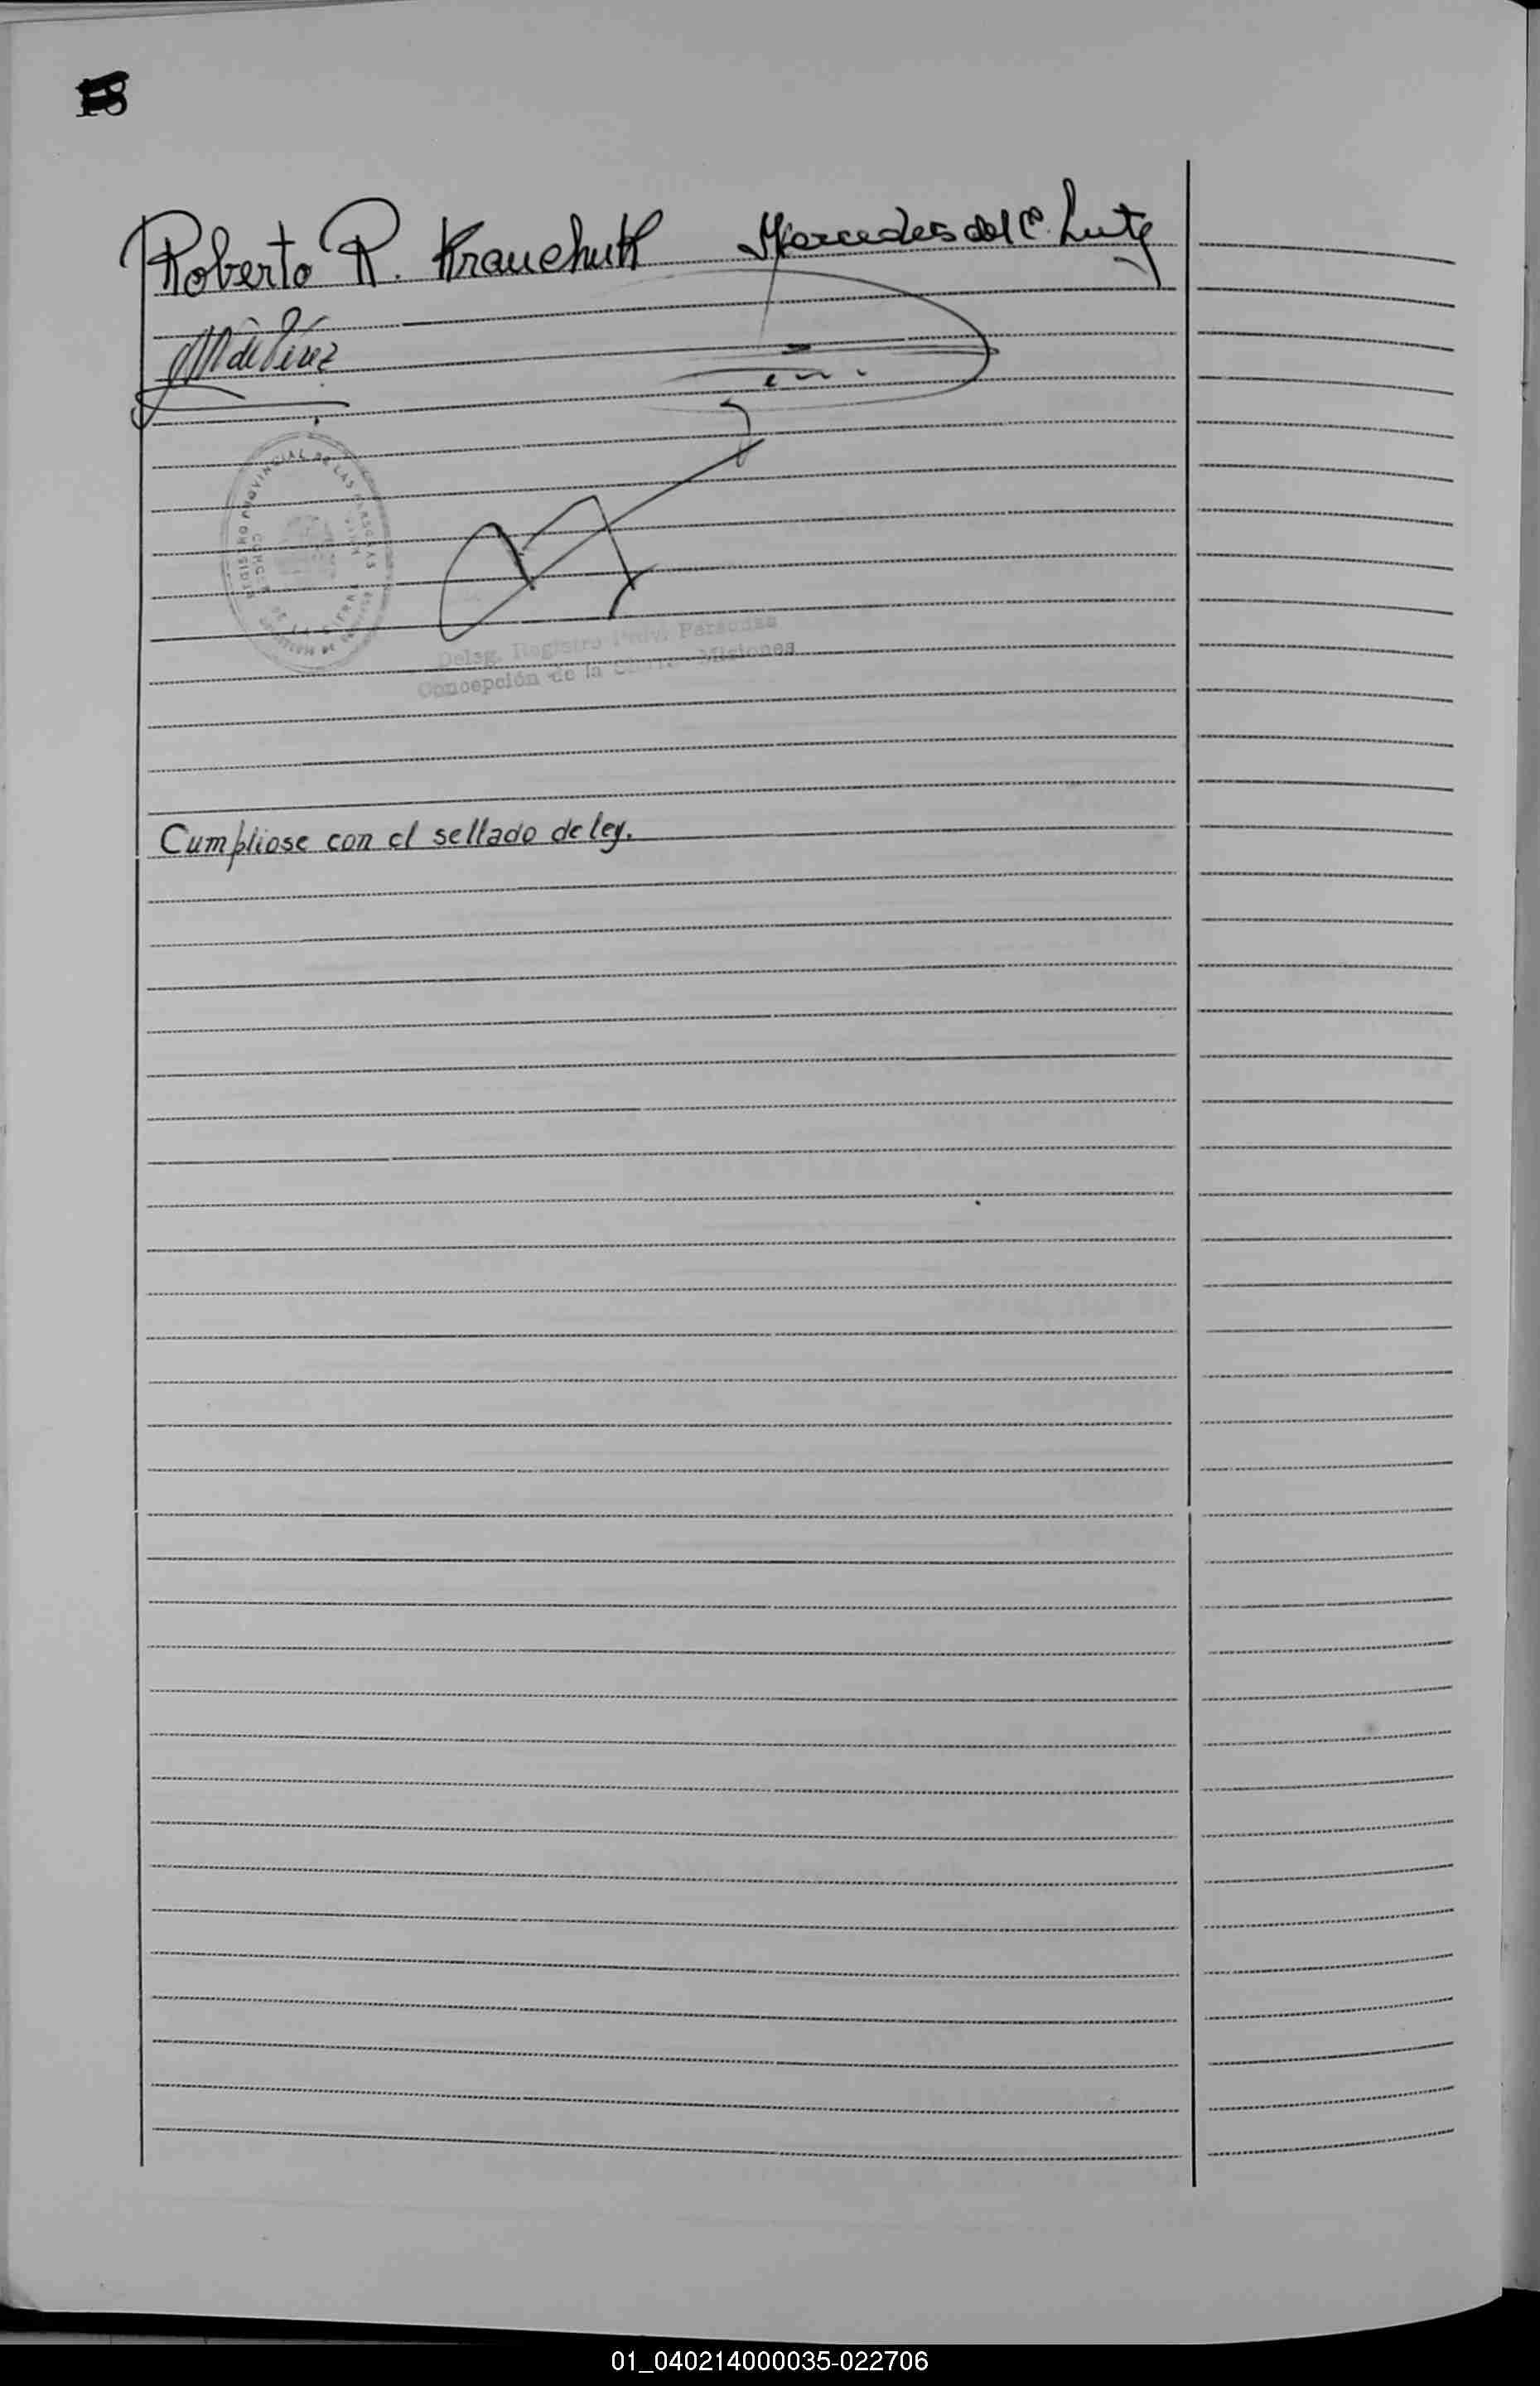 18
Roberto R. Krauchuk Mercedes del C. Lutz
M de Pérez
REGISTRO PROVINCIAL DE LAS PERSONAS
Deleg. Registro Prov. Personas
Concepción de la Sierra - Misiones
Cumpliose con el sellado de ley.
01_040214000035-022706